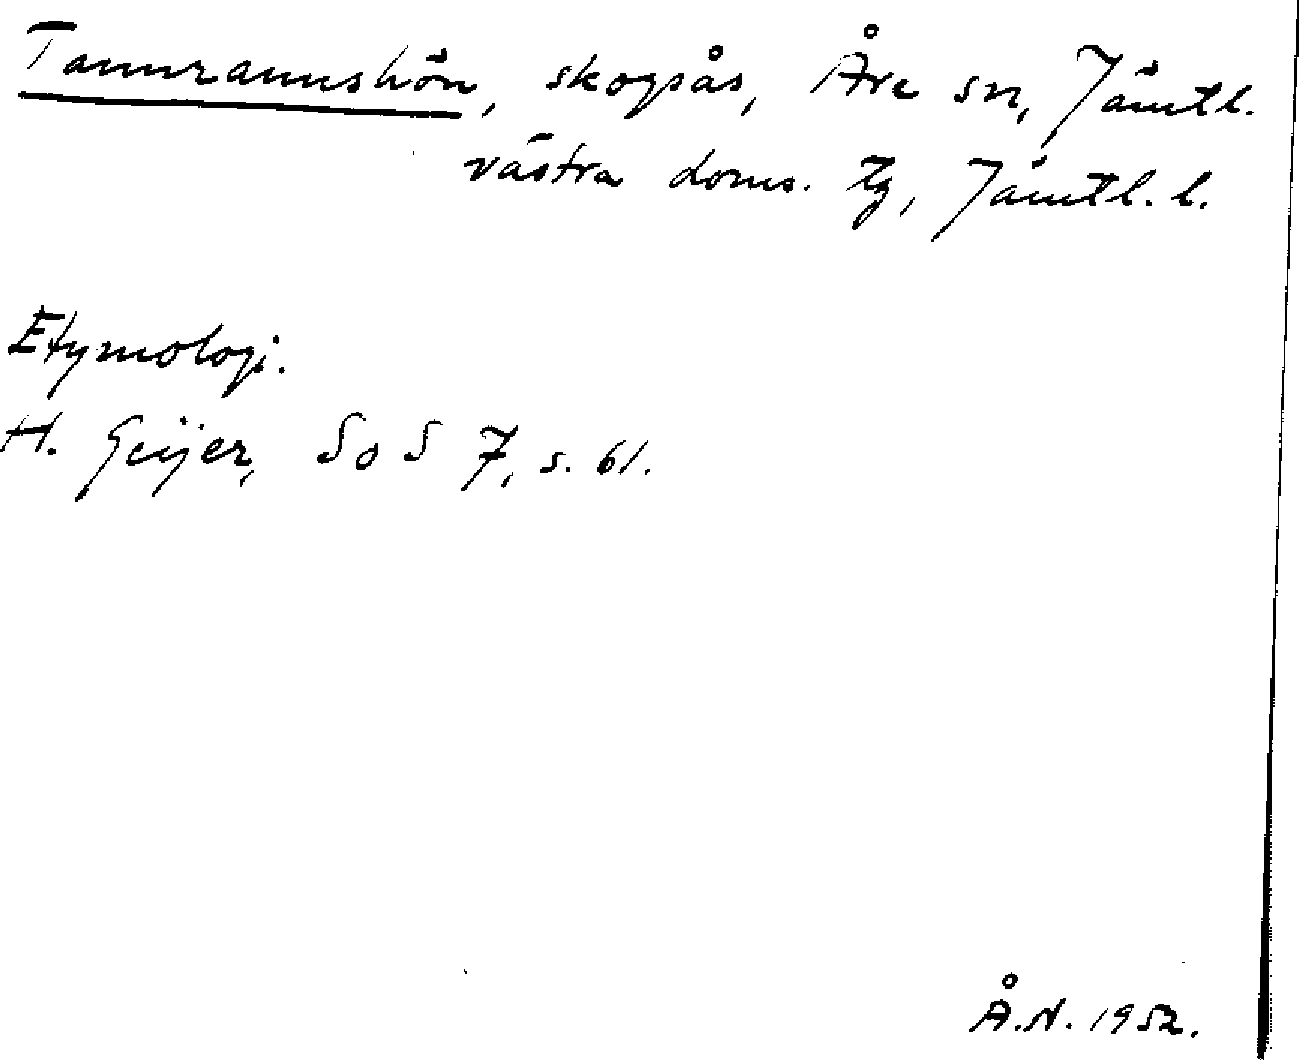 Tannrannshön, skogsås, Åre sn, Jämtl.
västra doms. tg, Jämtl. l.
Etymologi.
H. Geijer, SoS 7, s. 61.
Å.N. 1952.